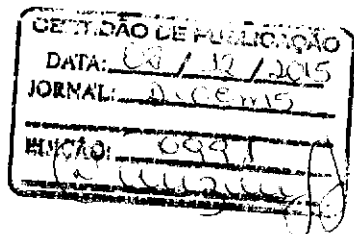 CERTIDÃO DE PUBLICAÇÃO
DATA: 08 / 12 / 2015
JORNAL: D.O.C.E.M.S
EDIÇÃO: 0991